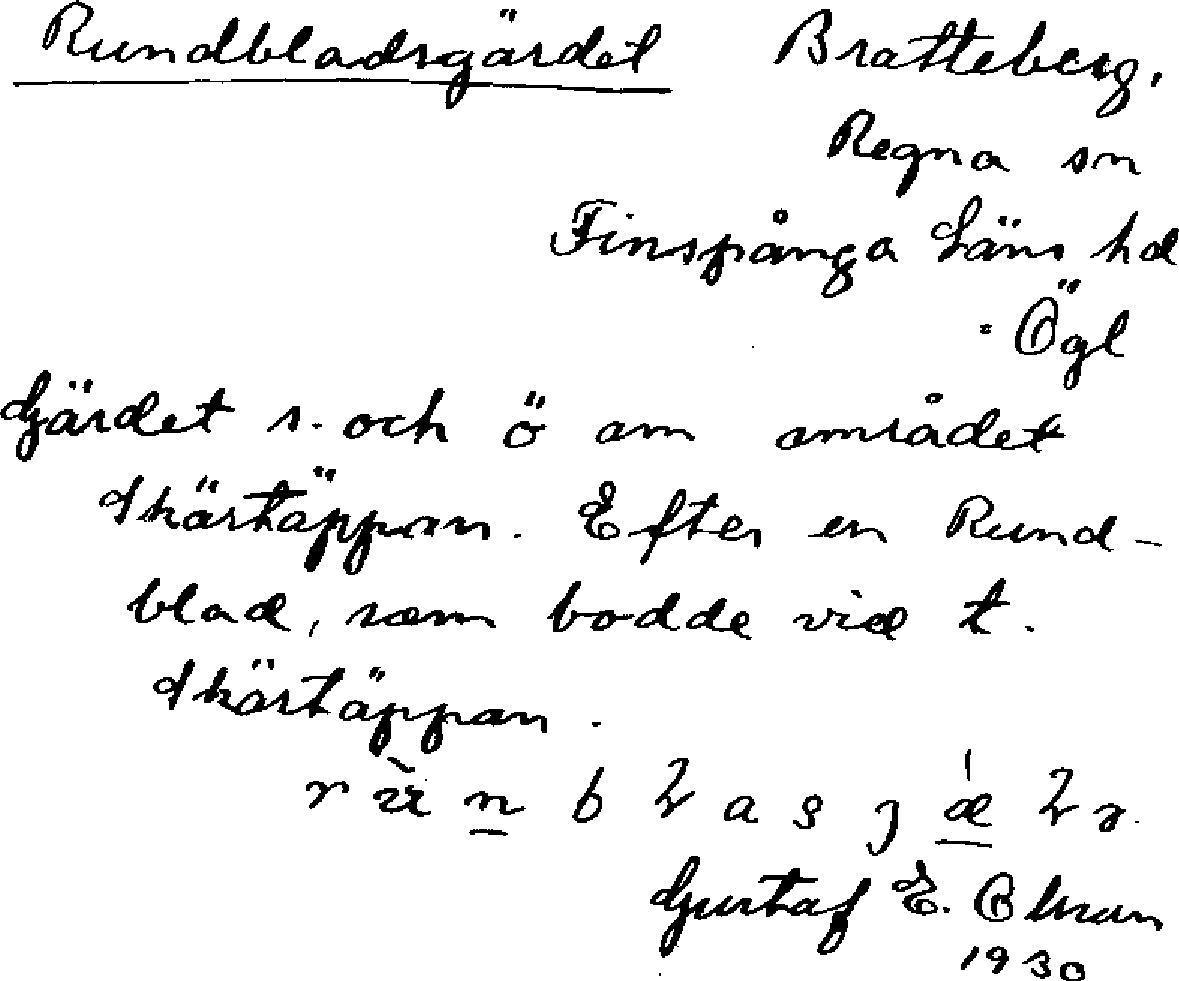 Rundbladsgärdet Bratteberg,
Regna sn
Finspånga läns hd
Ögl
Gärdet s. och ö om området
Skärtäppan. Efter en Rund-
blad, som bodde vid t.
Skärtäppan.
Gustaf E.
1930